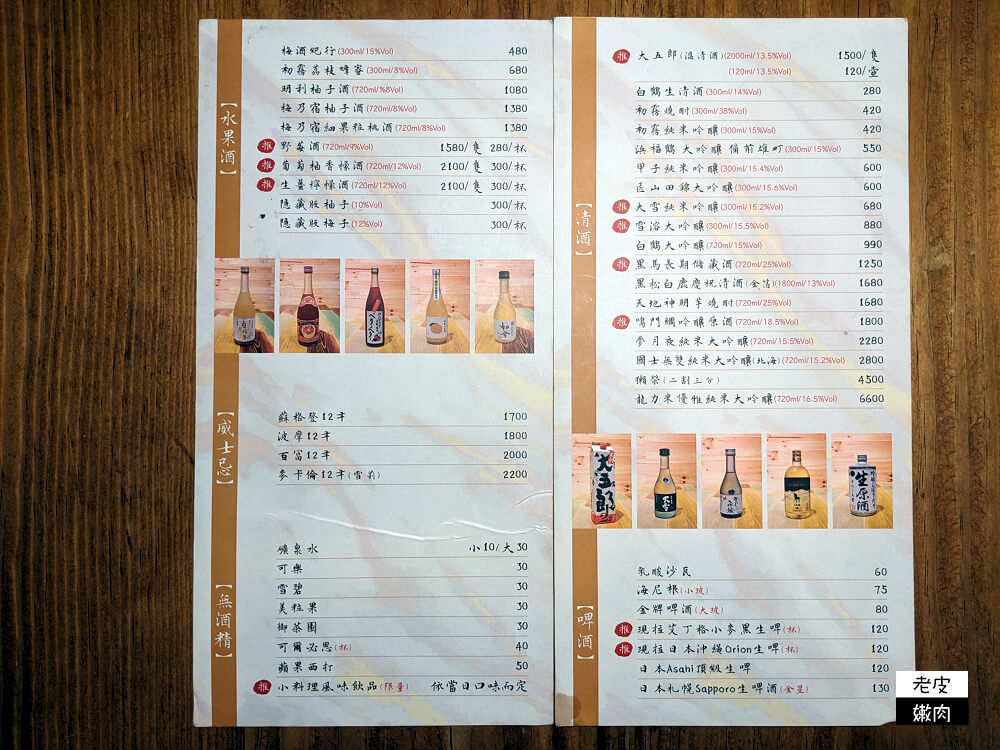 【水果酒】
梅酒紀行(300ml/15%Vol) 480
初霧荔枝蜂蜜(300ml/8%Vol) 680
明利柚子酒(720ml/%8Vol) 1080
梅乃宿柚子酒(720ml/8%Vol) 1380
梅乃宿細果粒桃酒(720ml/8%Vol) 1380
推 野莓酒(720ml/9%Vol) 1580/隻 280/杯
推 葡萄柚香檬酒(720ml/12%Vol) 2100/隻 300/杯
推 生薑檸檬酒(720ml/12%Vol) 2100/隻 300/杯
隱藏版柚子(10%Vol) 300/杯
隱藏版梅子(12%Vol) 300/杯
【威士忌】
蘇格登12年 1700
波摩12年 1800
百富12年 2000
麥卡倫12年(雪莉) 2200
【無酒精】
礦泉水 小10/大30
可樂 30
雪碧 30
美粒果 30
御茶園 30
可爾必思(杯) 40
蘋果西打 50
推 小料理風味飲品(限量) 依當日口味而定
【清酒】
推 大五郎(溫清酒)(2000ml/13.5%Vol) 1500/隻
(120ml/13.5%Vol) 120/壺
白鶴生清酒(300ml/14%Vol) 280
初霧燒酎(300ml/38%Vol) 420
初霧純米吟釀(300ml/15%Vol) 420
浜福鶴大吟釀備前雄町(300ml/15%Vol) 550
甲子純米吟釀(300ml/15.4%Vol) 600
匠山田錦大吟釀(300ml/15.6%Vol) 600
推 大雪純米吟釀(300ml/15.2%Vol) 680
推 雪溶大吟釀(300ml/15.5%Vol) 880
白鶴大吟釀(720ml/15%Vol) 990
推 黑馬長期儲藏酒(720ml/25%Vol) 1250
黑松白鹿慶祝清酒(金箔)(1800ml/13%Vol) 1680
天地神明芋燒酎(720ml/25%Vol) 1680
推 鳴門鯛吟釀原酒(720ml/18.5%Vol) 1800
夢月夜純米大吟釀(720ml/15.5%Vol) 2280
國士無雙純米大吟釀(北海)(720ml/15.2%Vol) 2800
獺祭(二割三分) 4500
龍力米優雅純米大吟釀(720ml/16.5%Vol) 6600
大五郎
生原酒
【啤酒】
乳酸沙瓦 60
海尼根(小玻) 75
金牌啤酒(大玻) 80
推 現拉艾丁格小麥黑生啤(杯) 120
推 現拉日本沖繩Orion生啤(杯) 120
日本Asahi頂級生啤 120
日本札幌Sapporo生啤酒(金星) 130
老皮
嫩肉